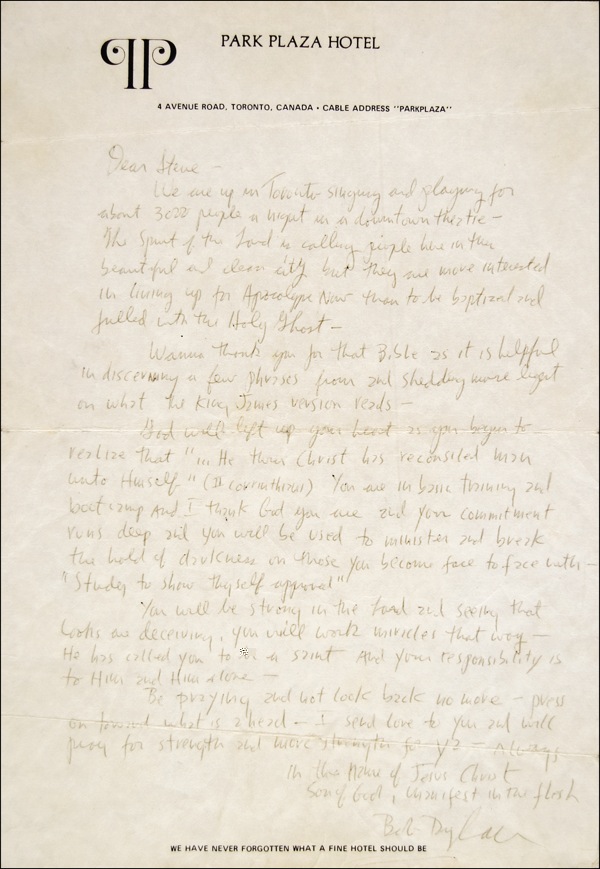 PARK PLAZA HOTEL
4 AVENUE ROAD, TORONTO, CANADA • CABLE ADDRESS "PARKPLAZA"
Dear Steve –
We are up in Toronto singing and playing for
about 3000 people a night in a downtown theatre –
The Spirit of the Lord is calling people here in this
beautiful and clean city but they are more interested
in lining up for Apocalypse Now than to be baptized and
filled with the Holy Ghost –
Wanna thank you for that Bible as it is helpful
in discerning a few phrases from and shedding more light
on what the King James version reads –
God will lift up your heart as you begin to
realize that "... He thru Christ has reconciled man
unto Himself" (II Corinthians) You are in basic training and
bootcamp And I thank God you are and your commitment
runs deep and you will be used to minister and break
the hold of darkness on those you become face to face with –
"Study to show thyself approved"
You will be strong in the Lord and seeing that
looks are deceiving, you will work miracles that way –
He has called you to be a saint And your responsibility is
to Him and Him alone –
Be praying and not look back no more – press
on toward what is ahead – I send love to you and will
pray for strength and more strength for ya – Always
in the Name of Jesus Christ
Son of God, manifest in the flesh
Bob Dylan
WE HAVE NEVER FORGOTTEN WHAT A FINE HOTEL SHOULD BE